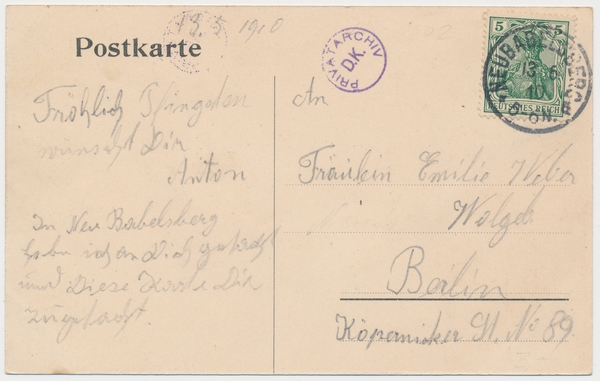 13.5 1910
Postkarte
PRIVATARCHIV
D.K.
5 5
DEUTSCHES REICH
NEUBABELSBERG
13.5
10.
5-6N.
Fröhlich Pfingsten
wünscht Dir
Anton
In Neu Babelsberg
habe ich an Dich gedacht
und Diese Karte Dir
zugedacht.
An
Fräulein Emilie Weber
Berlin
Köpenicker St. No 89